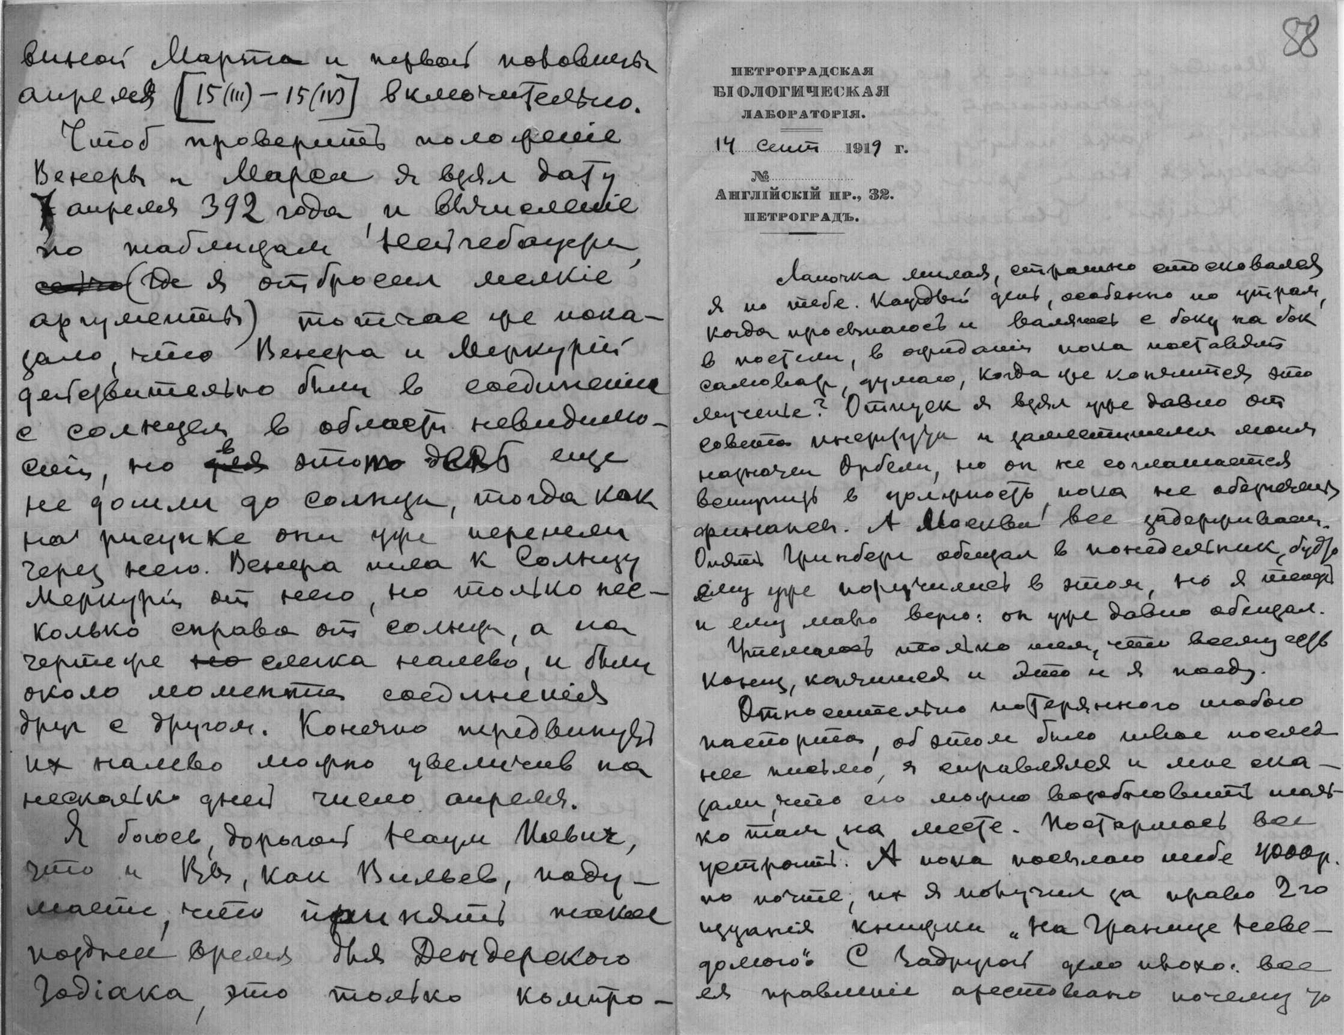 виной Марта и первой половины
апреля [15(III) – 15(IV)] включительно.
Чтоб проверить положеніе
Венеры и Марса я взял дату
7 апреля 392 года, и вычисленіе
по таблицам Нейгебауера,
(где я отбросил мелкіе
аргументы) тотчас же пока-
зало, что Венера и Меркурій
действительно были в соединении
с солнцем в области невидимо-
сти, но в этот день еще
не дошли до солнца, тогда как
на рисунке они уже перешли
через него. Венера шла к Солнцу
Меркурій от него, но только нес-
колько справа от солнца, а на
чертеже слегка налево, и были
около момента соединенія
друг с другом. Конечно передвинуть
их налево можно увеличив на
несколько дней число апреля.
Я боюсь, дорогой Наум Ильич,
что и Вы, как Вильев, поду-
маете, что принять такое
позднее время для Дендерского
Зодіака, это только компро-
88
ПЕТРОГРАДСКАЯ
БІОЛОГИЧЕСКАЯ
ЛАБОРАТОРІЯ.
14 сент 1919 г.
№
АНГЛІЙСКІЙ ПР., 32.
ПЕТРОГРАДЪ.
Лапочка милая, страшно стосковался
я по тебе. Каждый день, особенно по утрам,
когда просыпаюсь и валяюсь с боку на бок
в постели, в ожиданіи пока поставят
самовар, думаю, когда же кончится это
мученье? Отпуск я взял уже давно от
совета и заместителем моим
назначен Орбели, но он не соглашается
вступить в должность, пока не обеспечат
финансы. А Москва все задерживает.
Опять Гринберг обещал в понедельник, будто
ему уже поручились в этом, но я теперь
и ему мало верю: он уже давно обещал.
Утешаюсь только тем, что всему есть
конец, кончится и это и я поеду.
Относительно потерянного тобою
паспорта, об этом было твое послед-
нее письмо, я справлялся и мне ска-
зали, что его можно возобновить толь-
ко там, на месте. Постараюсь все
устроить. А пока посылаю тебе 4000р.
по почте, их я получил за право 2го
изданія книжки „На Границе Неве-
домого". С Задругой дело плохо: все
ея правленіе арестовано почему то